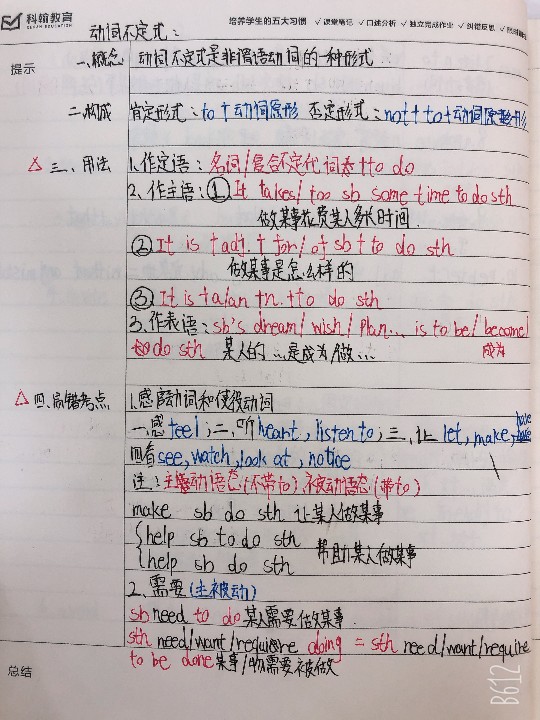 科翰教育
KEHAN EDUCATION
培养学生的五大习惯 ✓课堂笔记 ✓口述分析 ✓独立完成作业 ✓纠错反思
动词不定式:
提示
一、概念 动词不定式是非谓语动词的一种形式
二、构成 肯定形式:to+动词原形 否定形式:not+to+动词原形
△三、用法 1.作定语:名词/复合不定代词 +to do
2.作主语:①It takes/too sb some time to do sth
做某事花费某人多长时间.
②It is +adj.+for/of sb+to do sth
做某事是怎么样的
③It is+a/an+n.+to do sth
3.作表语:sb's dream/wish/plan... is to be/become/
to do sth 某人的...是成为/做... 成为
△四、易错考点 1.感官动词和使役动词
一感feel;二听heart,listen to;三让let,make,have
四看see,watch,look at,notice
注:主动语态(不带to),被动语态(带to)
make sb do sth 让某人做某事
help sb to do sth
help sb do sth 帮助某人做某事
2.需要(主被动)
sb need to do某人需要做某事.
sth need/want/require doing = sth need/want/require
to be done某事/物需要被做
总结
B612